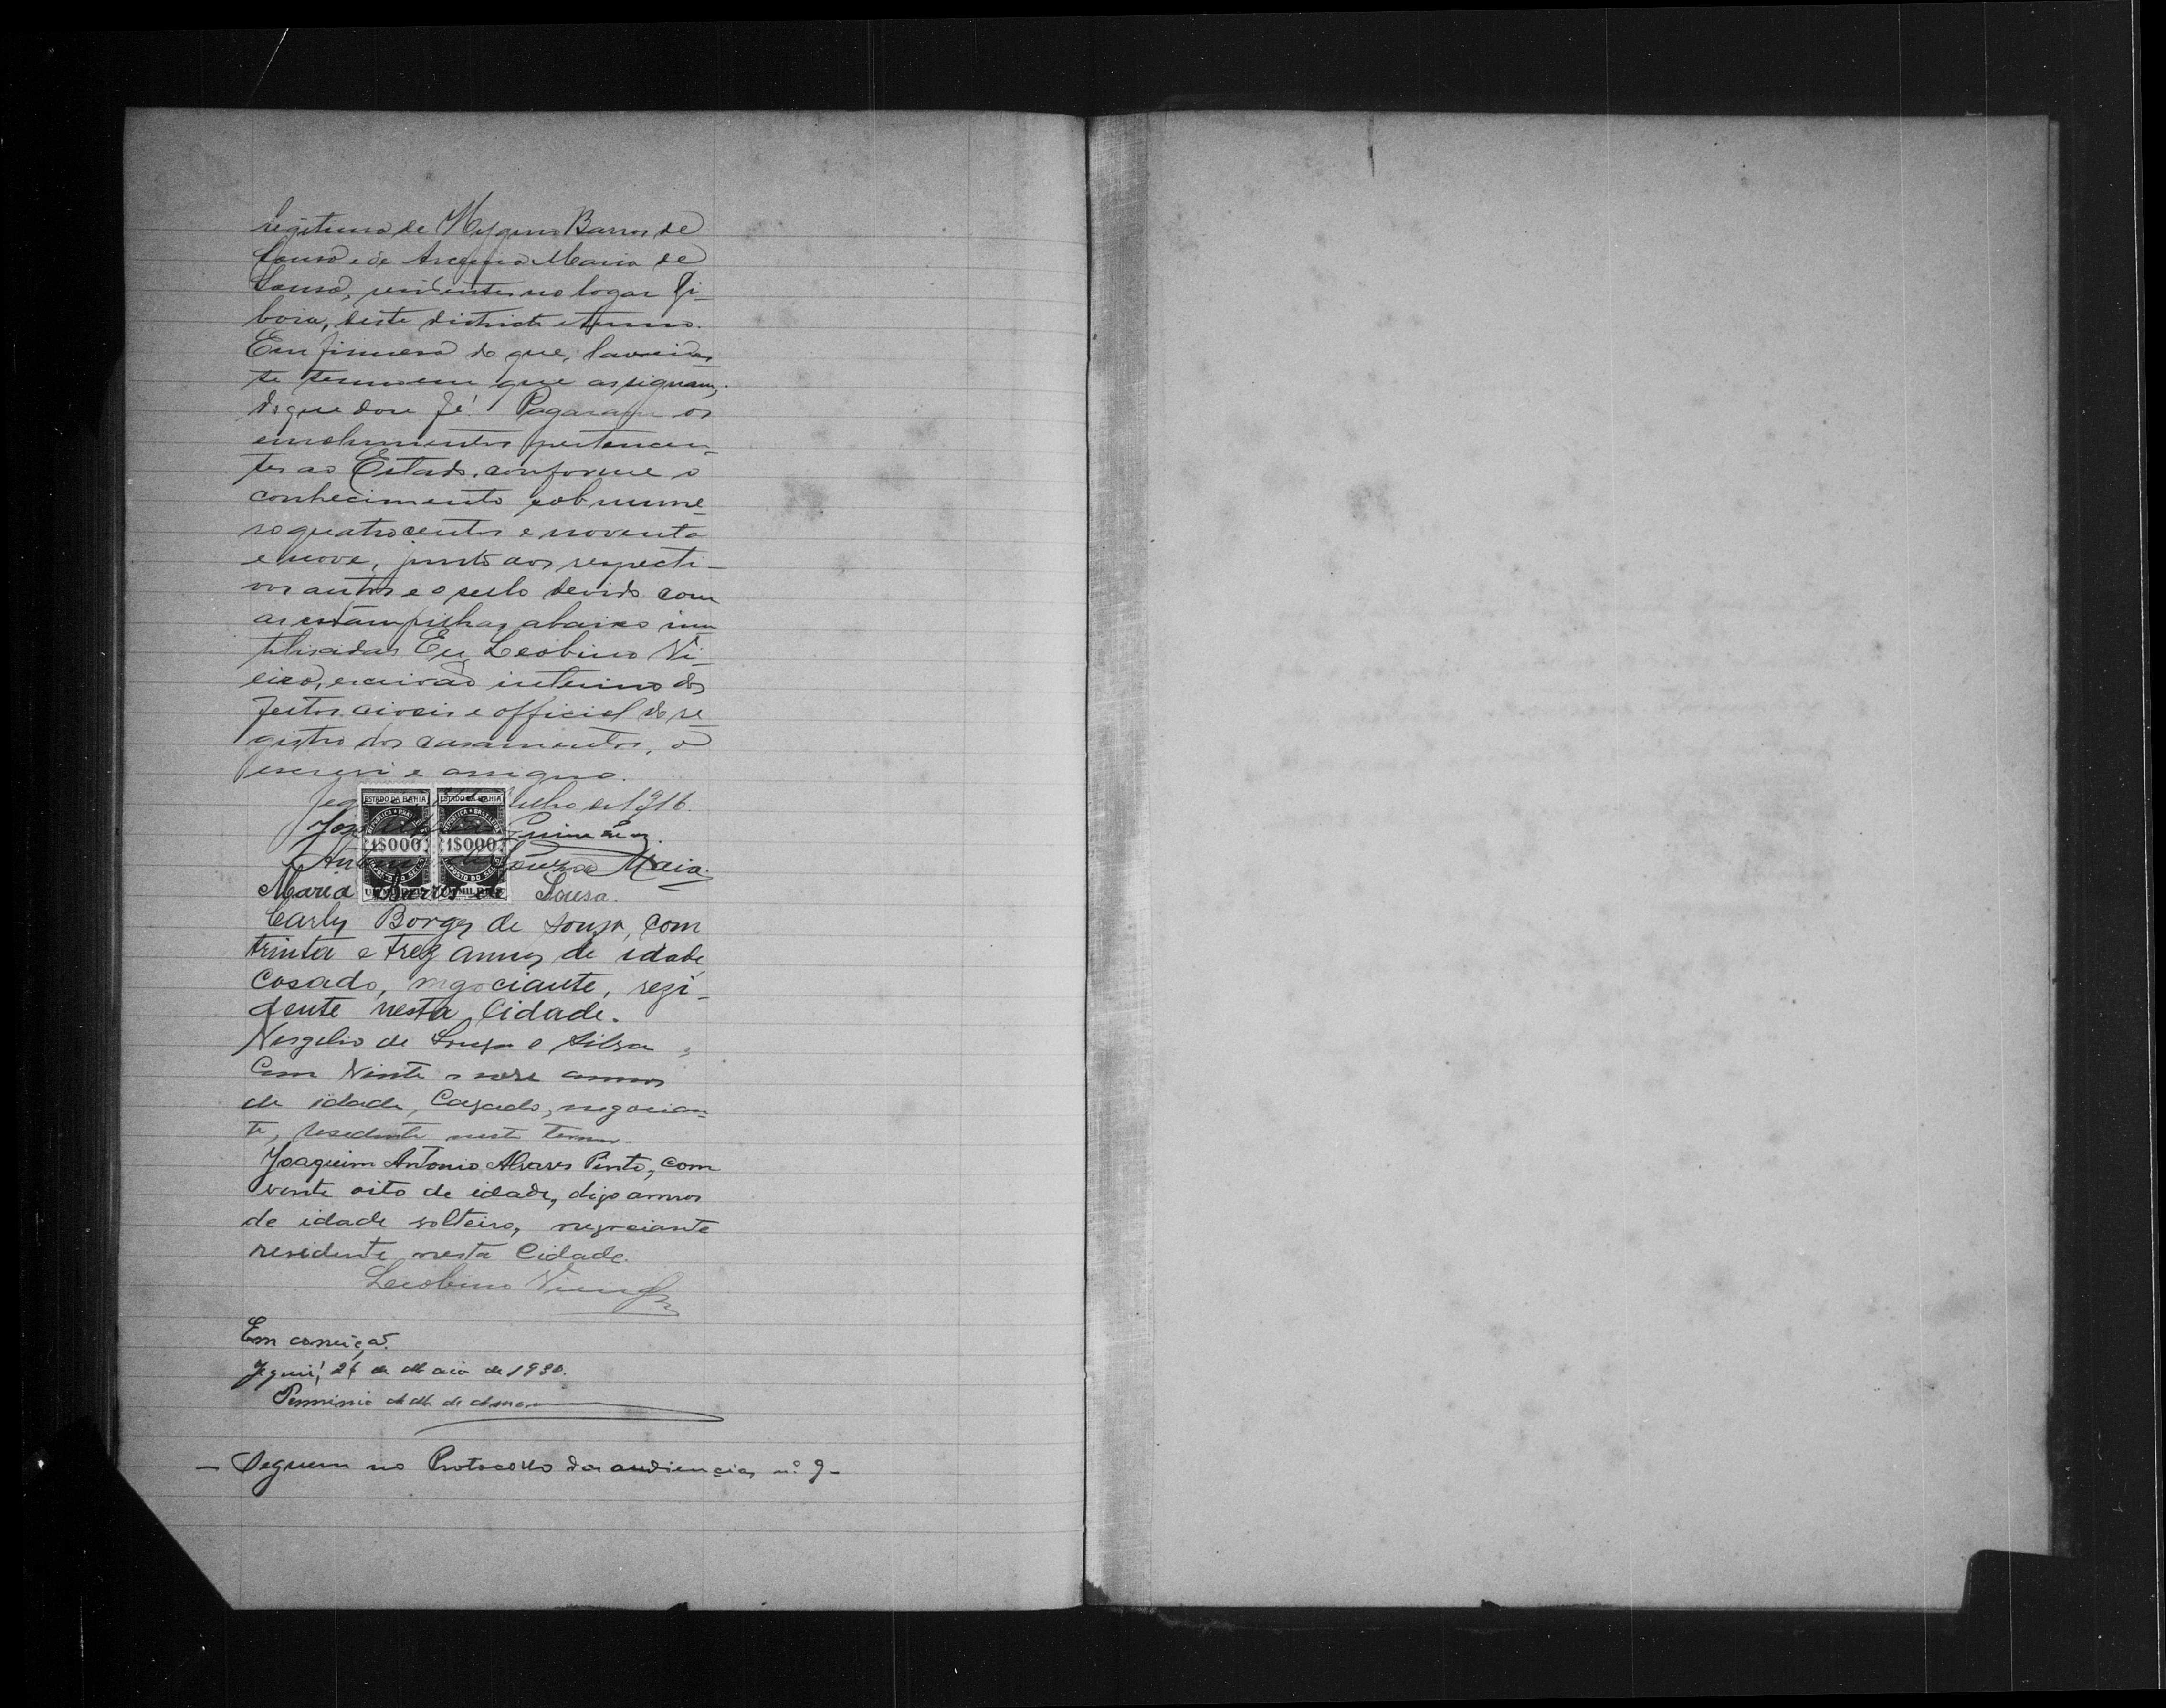 legitima de Hygino Barros de
Sousa e de Arcenia Maria de
Sousa, residentes no logar Gi-
boia, deste districto e termo.
Em firmesa do que, lavrei es-
te termo em que assignam,
do que dou fé. Pagaram os
emolumentos pertencen-
tes ao Estado, conforme o
conhecimento sob nume-
ro quatrocentos e noventa
e nove, junto aos respecti-
vos autos e o sello devido com
as estampilhas abaixo inu-
tilisadas. Eu, Leobino Vi-
eira, escrivão interino dos
feitos civeis e official do re-
gistro dos casamentos, o
escrevi e assigno.
Julho de 1916.
ESTADO DA BAHIA ESTADO DA BAHIA
José Guimarães
1$000 1$000
Antonio de Souza Maia.
Maria Barros de Sousa.
Carly Borges de Souza, com
trinta e trez annos de idade
Casado, negociante, rezi-
dente nesta Cidade.
Virgilio de Souza e Silva,
Com Vinte e nove annos
de idade, Cazado, negocian-
te, residente neste termo.
Joaquim Antonio Alvares Pinto, com
vinte oito de idade, digo annos
de idade solteiro, negociante
residente nesta Cidade.
Leobino Vieira
Em correição.
Jequié, 26 de Maio de 1930.
de
— Seguem no Protocollo das audiencias nº 9 —